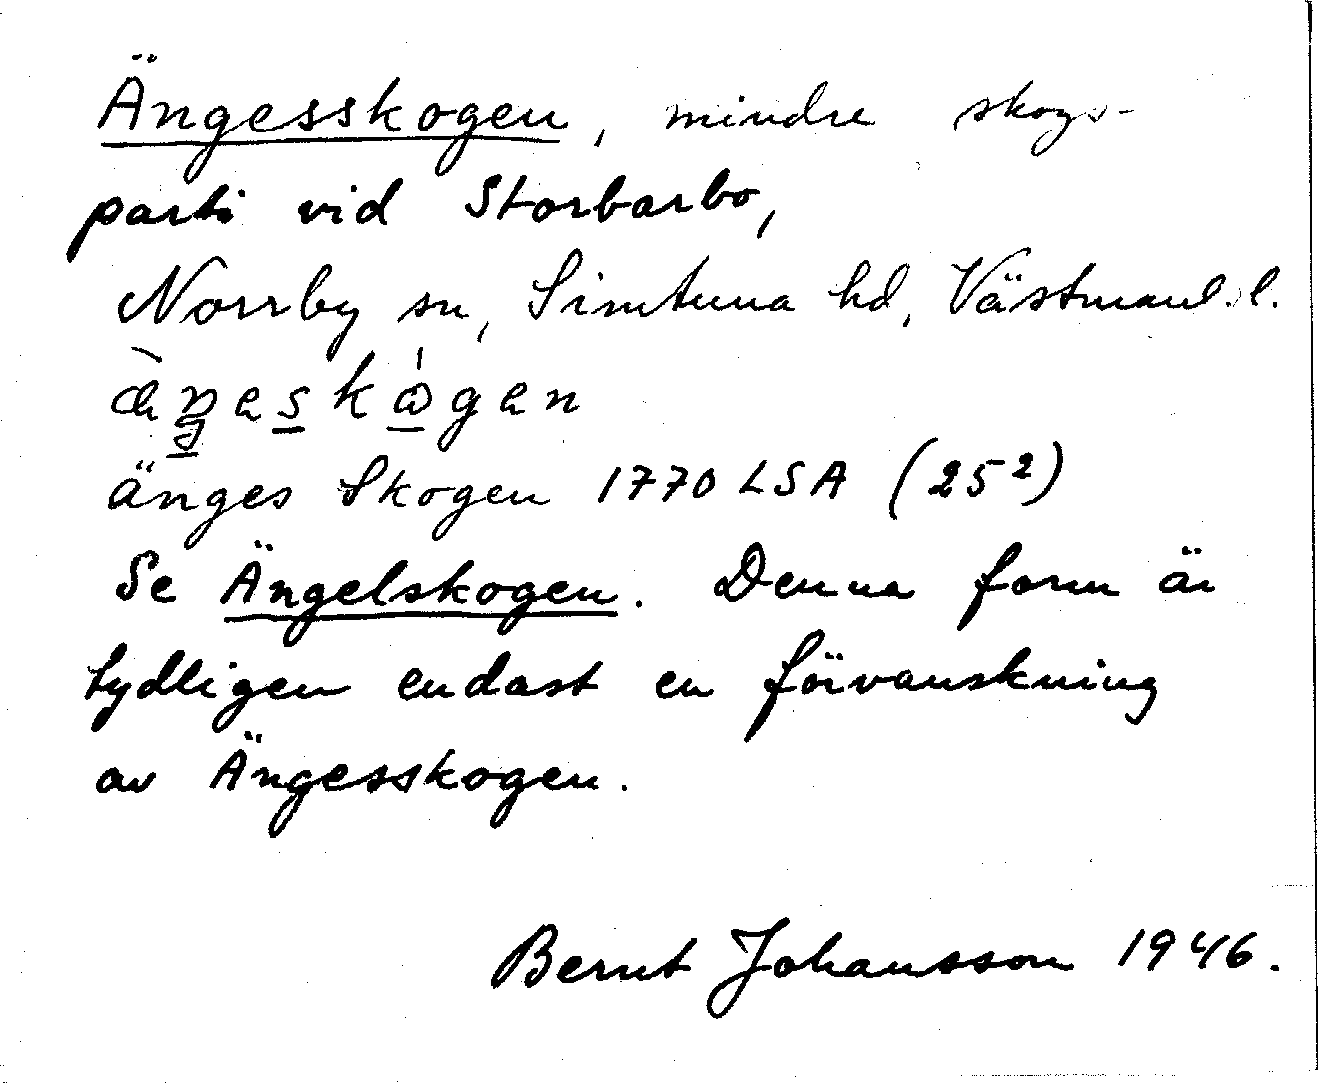 Ängesskogen, mindre skogs-
parti vid Storbarbo,
Norrby sn, Simtuna hd, Västmanl. l.
änges Skogen 1770 LSA (25²)
Se Ängelskogen. Denna form är
tydligen endast en förvanskning
av Ängesskogen.
Bernt Johansson 1946.